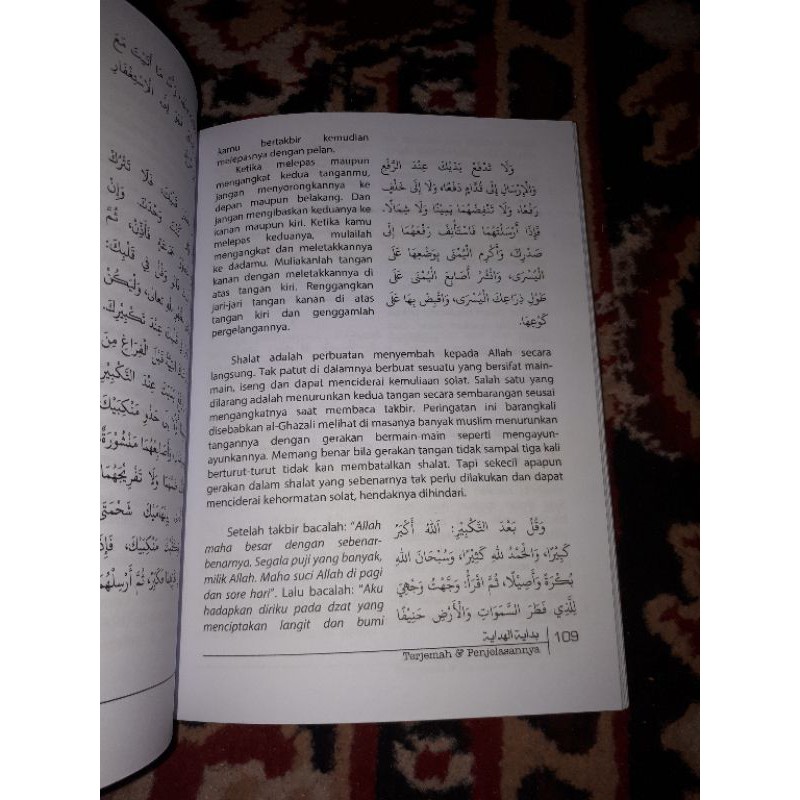 رُبَّ مَا أَتَيْتَ مَعَ
الْاِسْتِغْفَارِ
فَلَا تَتْرُكْ
وَحْدَكَ وَإِنْ
ثُمَّ
فِي قَلْبِكَ:
تَعَالَى، وَلْيَكُنْ
عِنْدَ تَكْبِيْرِكَ
قَبْلَ الْفَرَاغِ مِنَ
عِنْدَ التَّكْبِيْرِ
حَذْوِ مَنْكِبَيْكَ
مَنْشُوْرَةٌ
وَلَا تَفْرِيْجَهُمَا
شَحْمَتَيْ
مَنْكِبَيْكَ، فَإِذَا
فَكَبِّرْ، ثُمَّ أَرْسِلْهُمَا
kamu bertakbir kemudian
melepasnya dengan pelan.
Ketika melepas maupun
mengangkat kedua tanganmu,
jangan menyorongkannya ke
depan maupun belakang. Dan
jangan mengibaskan keduanya ke
kanan maupun kiri. Ketika kamu
melepas keduanya, mulailah
mengangkat dan meletakkannya
ke dadamu. Muliakanlah tangan
kanan dengan meletakkannya di
atas tangan kiri. Renggangkan
jari-jari tangan kanan di atas
tangan kiri dan genggamlah
pergelangannya.
وَلَا تَدْفَعْ يَدَيْكَ عِنْدَ الرَّفْعِ
وَالْإِرْسَالِ إِلَى قُدَّامٍ دَفْعًا، وَلَا إِلَى خَلْفٍ
رَفْعًا، وَلَا تَنْفِضْهُمَا يَمِيْنًا وَلَا شِمَالًا.
فَإِذَا أَرْسَلْتَهُمَا فَاسْتَأْنِفْ رَفْعَهُمَا إِلَى
صَدْرِكَ، وَأَكْرِمِ الْيُمْنَى بِوَضْعِهَا عَلَى
الْيُسْرَى، وَانْشُرْ أَصَابِعَ الْيُمْنَى عَلَى
طُوْلِ ذِرَاعِكَ الْيُسْرَى، وَاقْبِضْ بِهَا عَلَى
كُوْعِهَا.
Shalat adalah perbuatan menyembah kepada Allah secara
langsung. Tak patut di dalamnya berbuat sesuatu yang bersifat main-
main, iseng dan dapat menciderai kemuliaan solat. Salah satu yang
dilarang adalah menurunkan kedua tangan secara sembarangan seusai
mengangkatnya saat membaca takbir. Peringatan ini barangkali
disebabkan al-Ghazali melihat di masanya banyak muslim menurunkan
tangannya dengan gerakan bermain-main seperti mengayun-
ayunkannya. Memang benar bila gerakan tangan tidak sampai tiga kali
berturut-turut tidak kan membatalkan shalat. Tapi sekecil apapun
gerakan dalam shalat yang sebenarnya tak perlu dilakukan dan dapat
menciderai kehormatan solat, hendaknya dihindari.
Setelah takbir bacalah: “Allah
maha besar dengan sebenar-
benarnya. Segala puji yang banyak,
milik Allah. Maha suci Allah di pagi
dan sore hari”. Lalu bacalah: “Aku
hadapkan diriku pada dzat yang
menciptakan langit dan bumi
وَقُلْ بَعْدَ التَّكْبِيْرِ: اَللهُ أَكْبَرُ
كَبِيْرًا، وَالْحَمْدُ لِلّٰهِ كَثِيْرًا، وَسُبْحَانَ اللهِ
بُكْرَةً وَأَصِيْلًا. ثُمَّ اقْرَأْ: وَجَّهْتُ وَجْهِيَ
لِلَّذِي فَطَرَ السَّمَوَاتِ وَالْأَرْضَ حَنِيْفًا
بداية الهداية
Terjemah & Penjelasannya
109